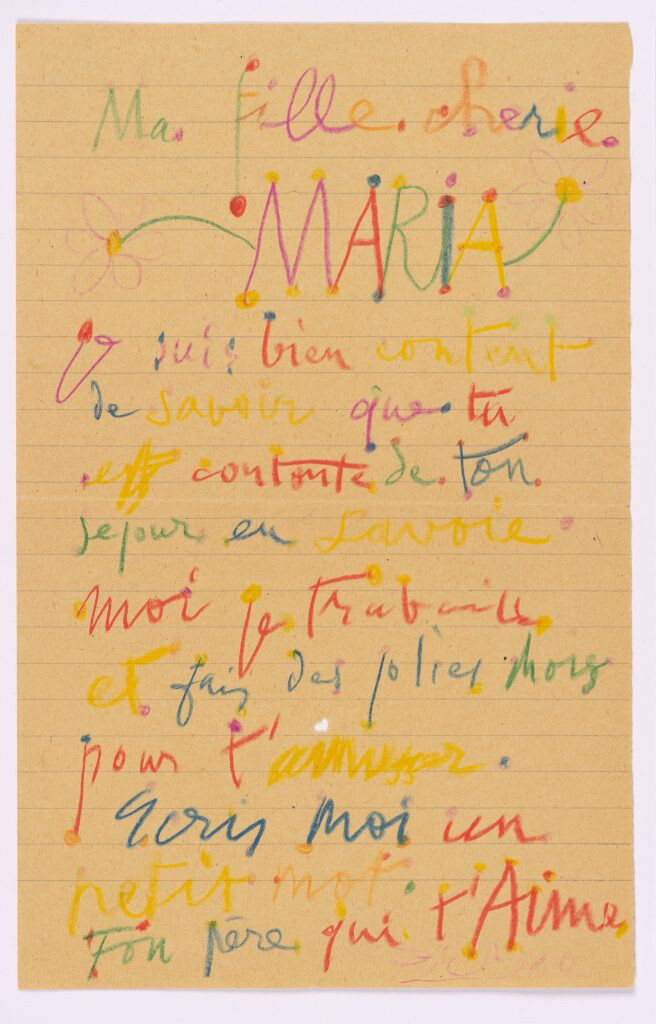 Ma fille cherie
MARIA
Je suis bien content
de savoir que tu
est contente de ton
sejour en Savoie
Moi je travaille
et fais des jolies
pour t'amusser.
Ecris moi un
petit mot.
Ton père qui t'Aime
Picasso